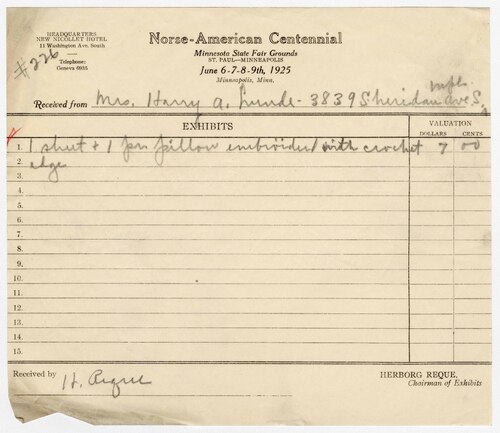 HEADQUARTERS
NEW NICOLLET HOTEL
11 Washington Ave. South
Telephone:
Geneva 6935
#226
Norse-American Centennial
Minnesota State Fair Grounds
ST. PAUL—MINNEAPOLIS
June 6-7-8-9th, 1925
Minneapolis, Minn.
Received from Mrs. Harry A. Lunde - 3839 Sheridan Ave S. Mpls
EXHIBITS
VALUATION
DOLLARS CENTS
1. 1 sheet + 1 pr pillow embroided with crochet 7 00
2. edge
3.
4.
5.
6.
7.
8.
9.
10.
11.
12.
13.
14.
15.
Received by H. Reque
HERBORG REQUE,
Chairman of Exhibits